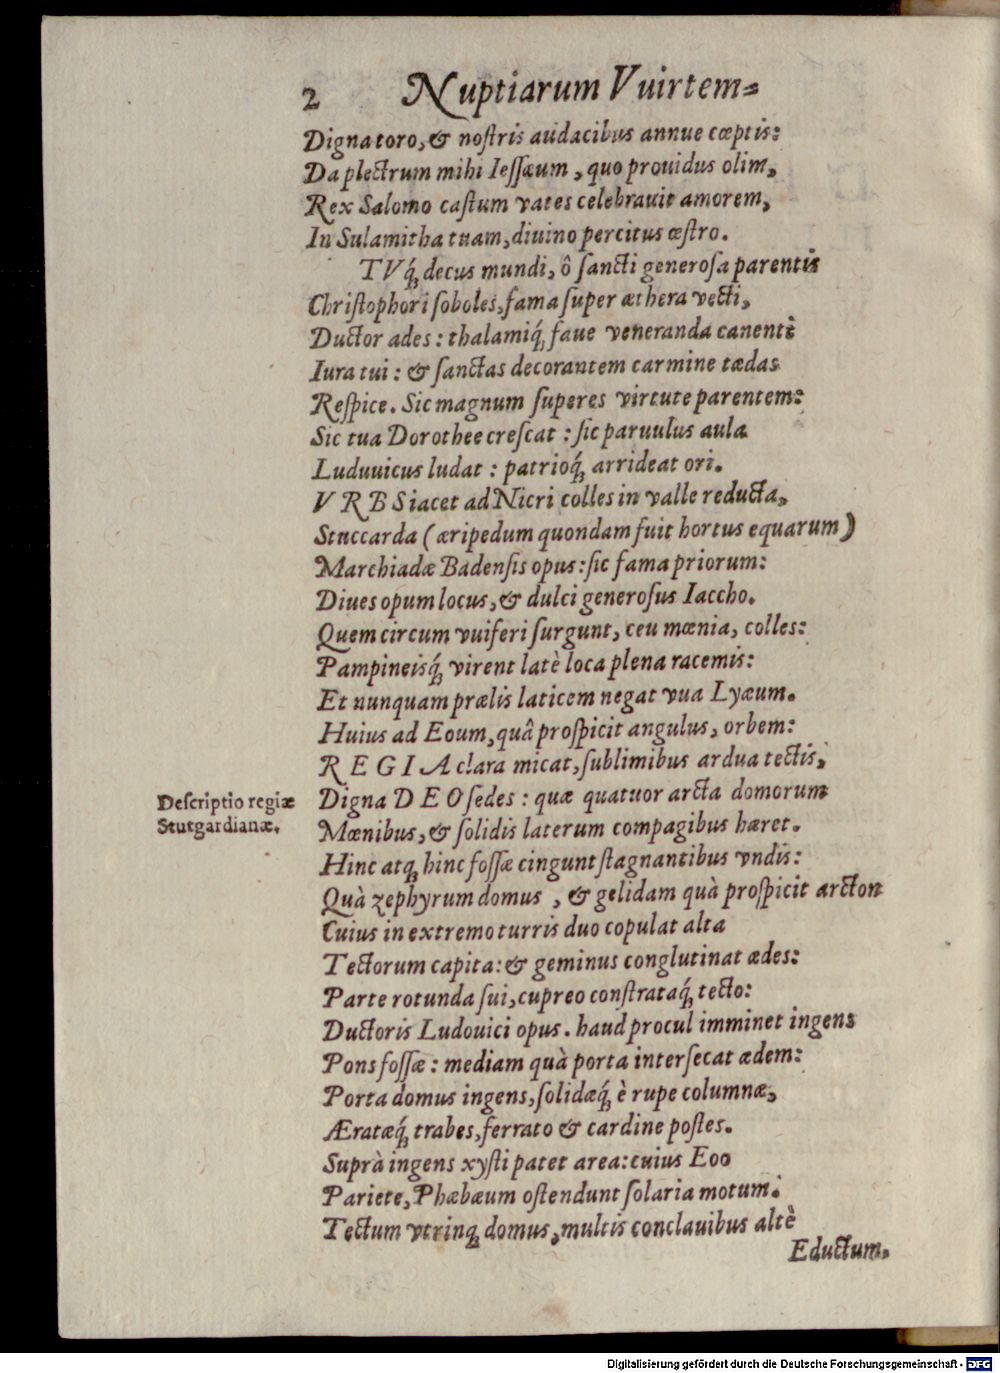 2 Nuptiarum Vuirtem=
Digna toro, & nostris audacibus annue cœptis:
Da plectrum mihi Iessæum, quo prouidus olim,
Rex Salomo castum vates celebrauit amorem,
In Sulamitha tuam, diuino percitus œstro.
TVq́; decus mundi, ô sancti generosa parentis
Christophori soboles, fama super æthera vecti,
Ductor ades: thalamiq́; faue veneranda canentè
Iura tui: & sanctas decorantem carmine tædas
Respice. Sic magnum superes virtute parentem:
Sic tua Dorothee crescat: sic paruulus aula
Luduuicus ludat: patrioq́; arrideat ori.
VRBS iacet ad Nicri colles in valle reducta,
Stuccarda (æripedum quondam fuit hortus equarum)
Marchiadæ Badensis opus: sic fama priorum:
Diues opum locus, & dulci generosus Iaccho.
Quem circum vuiferi surgunt, ceu mœnia, colles:
Pampineisq́; virent latè loca plena racemis:
Et nunquam prælis laticem negat vua Lyæum.
Huius ad Eoum, quâ prospicit angulus, orbem:
REGIA clara micat, sublimibus ardua tectis,
Descriptio regiæ
Stutgardianæ.
Digna DEO sedes: quæ quatuor arcta domorum
Mœnibus, & solidis laterum compagibus hæret.
Hinc atq; hinc fossæ cingunt stagnantibus vndis:
Quà zephyrum domus, & gelidam quà prospicit arcton
Cuius in extremo turris duo copulat alta
Tectorum capita: & geminus conglutinat ædes:
Parte rotunda sui, cupreo constrataq́; tecto:
Ductoris Ludouici opus. haud procul imminet ingens
Pons fossæ: mediam quà porta intersecat ædem:
Porta domus ingens, solidæq́; è rupe columnæ,
Ærateq́; trabes, ferrato & cardine postes.
Suprà ingens xysti patet area: cuius Eoo
Pariete, Phæbæum ostendunt solaria motum.
Tectum vtrinq; domus, multis conclauibus altè
Eductum.
Digitalisierung gefördert durch die Deutsche Forschungsgemeinschaft - DFG